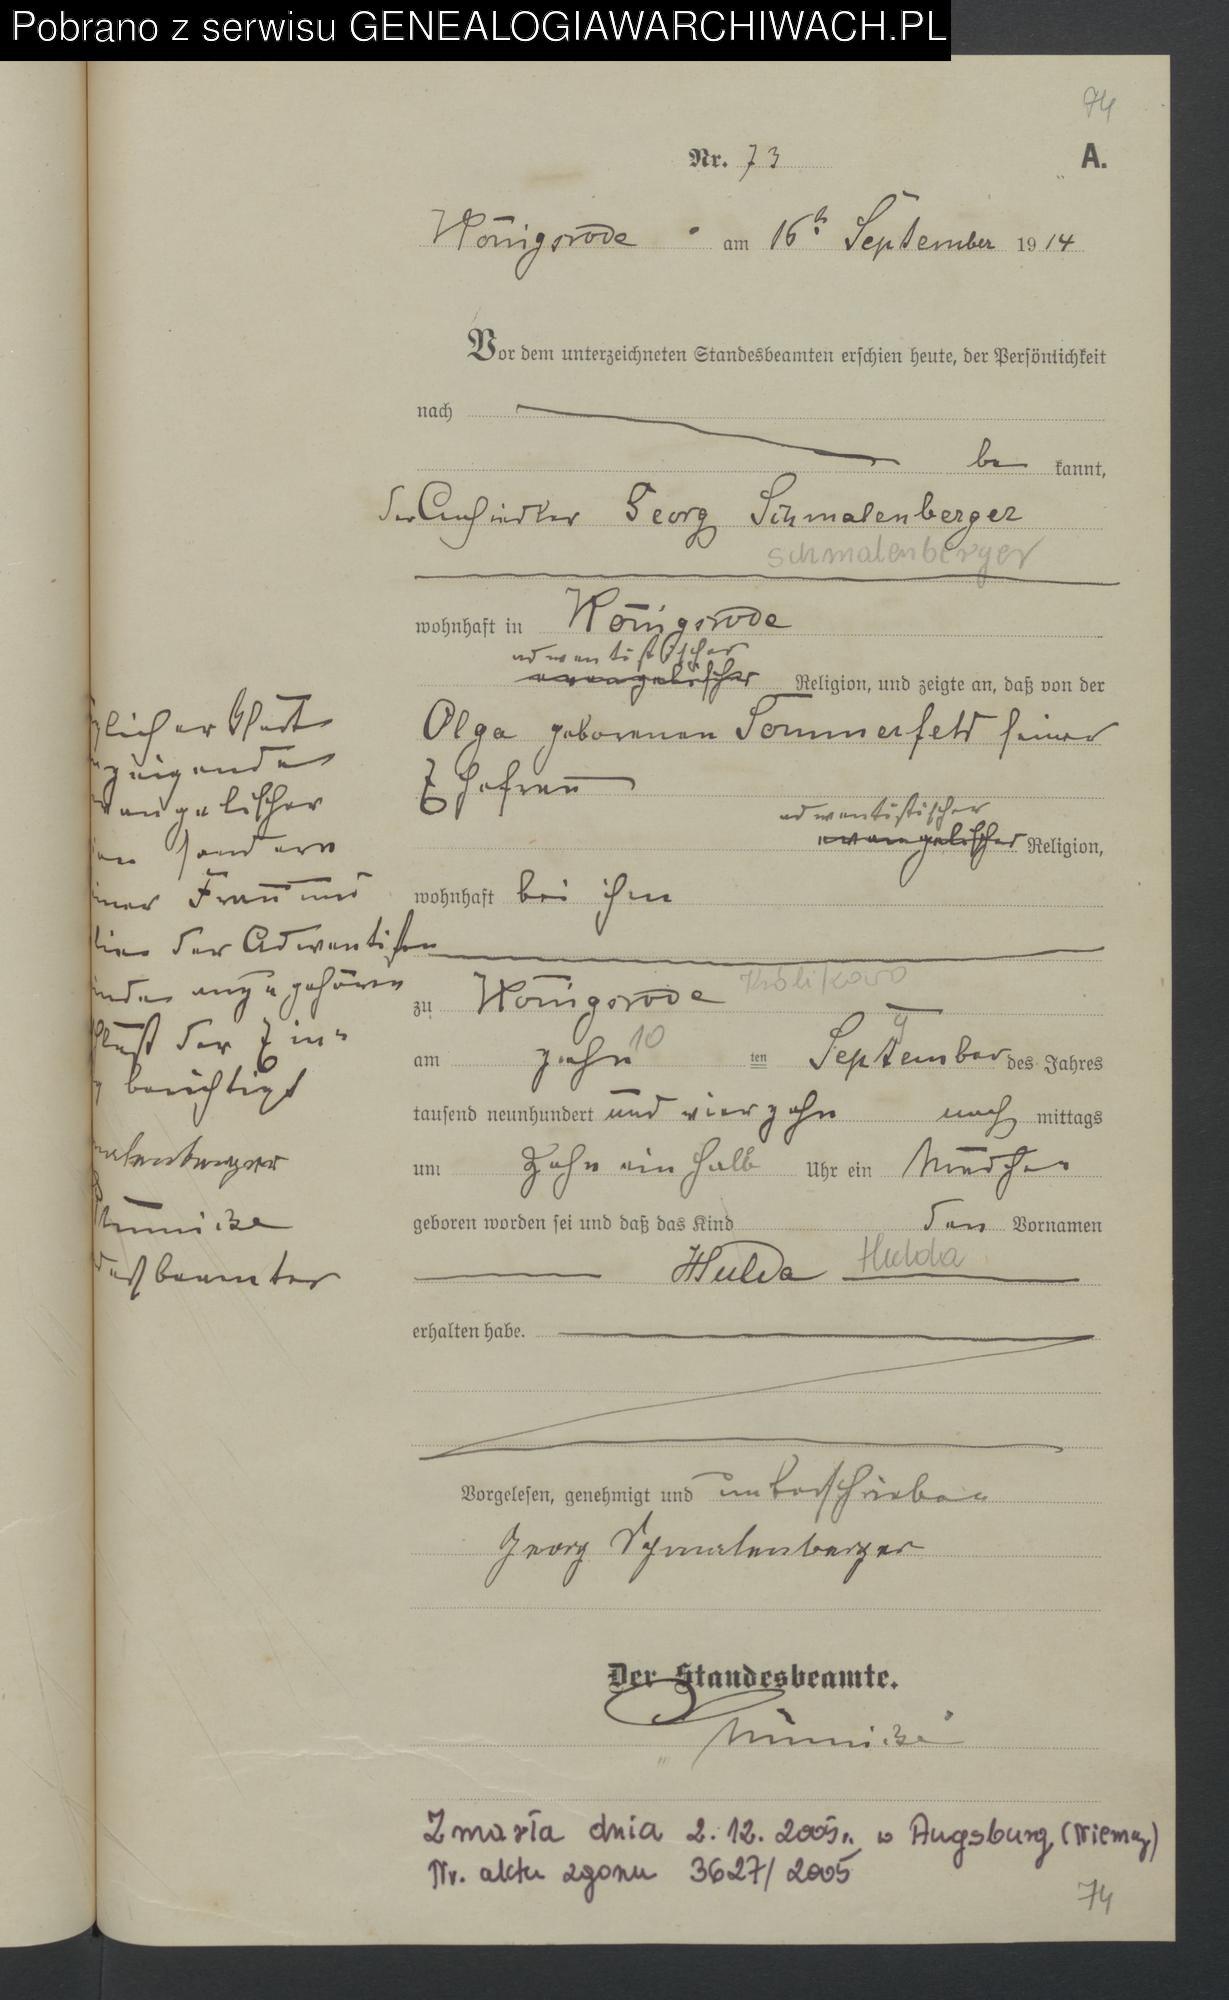 Pobrano z serwisu GENEALOGIAWARCHIWACH.PL
74
A.
Nr. 73
Königsrode am 16. September 1914
Vor dem unterzeichneten Standesbeamten erschien heute, der Persönlichkeit
nach
be kannt,
der Ansiedler Georg Schmalenberger
Schmalenberger
wohnhaft in Königsrode
adventistischer
evangelischer Religion, und zeigte an, daß von der
Olga geborenen Sommerfeld seiner
Ehefrau
adventistischer
evangelischer Religion,
wohnhaft bei ihm
zu Königsrode Królikowo
am zehn 10 ten September 9 des Jahres
tausend neunhundert und vierzehn nach mittags
um zehn ein halb Uhr ein Mädchen
geboren worden sei und daß das Kind den Vornamen
Hulda Hulda
erhalten habe.
Vorgelesen, genehmigt und unterschrieben
Georg Schmalenberger
Der Standesbeamte.
Zmarła dnia 2.12.2005r. w Augsburg (Niemcy)
Nr. aktu zgonu 3627/2005
74
zeigende
vangelischer
sondern
iner Frau und
der Adventisten
inde anzugehören
der Ein-
berichtigt
malenberger
desbeamter